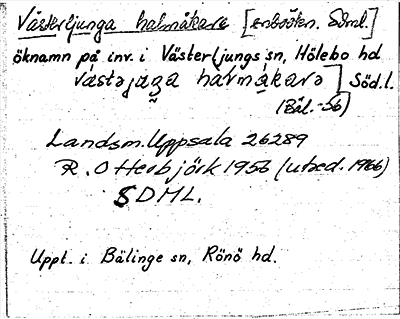 Västerljunga halmåkare [enbröten. Sdml.]
öknamn på inv. i Västerljungs sn, Hölebo hd
västəjuŋa hármákarə] Söd.l.
(Bäl.-56)
Landsm. Uppsala 26289
R. Otterbjörk 1956 (utred. 1966)
SDML.
Uppt. i Bälinge sn, Rönö hd.